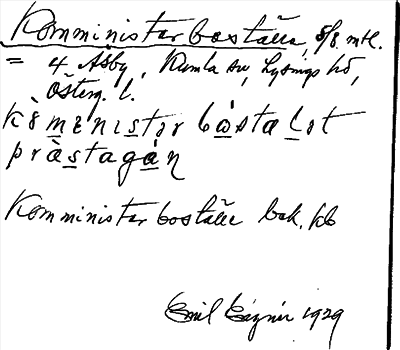 Komministerboställe, 5/8 mtl.
= 4 Åsby, Rumla sn, Lysings hd,
Österg. l.
kò̀menistər bɷ̀stalət
prὰstagán
Komministerboställe bok. hb
Emil 1929